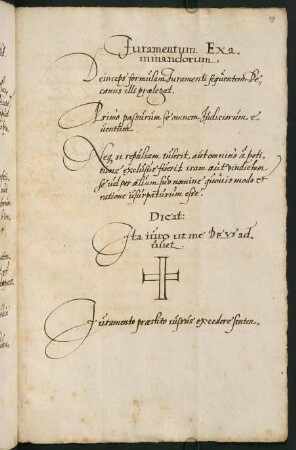 Iuramentum Exa
minandorum.
Deinceps formulam Iuramenti sequentem De
canus illi prælegat.
Primo passurum se omnem Iudiciorum e
uentum.
Neq si repulsam tulerit, aut omnino à peti
tione exclusus fuerit iram aut vindictam
se vel per alium, sub nomine quouis modo et
ratione usurpaturum esse.
Dicat:
Ita iuro ut me DEVS ad
iuuet.
Iuramento præstito iussus excedere senten